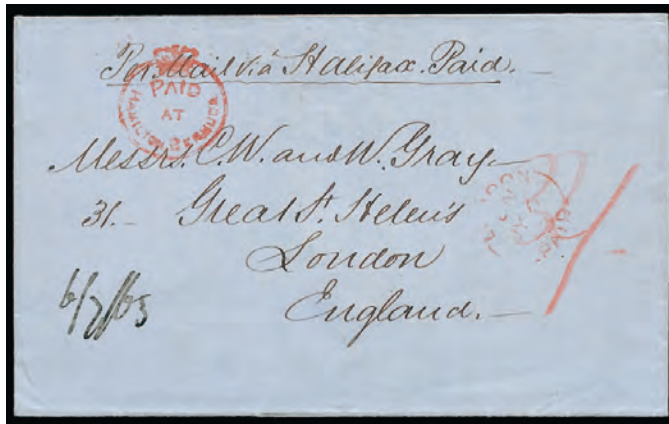 Per Mail viâ Halifax. Paid.
PAID
AT
HAMILTON BERMUDA
Messrs. C. W. and W. Gray
31 Great St. Helen's
London
England.
6/7/65